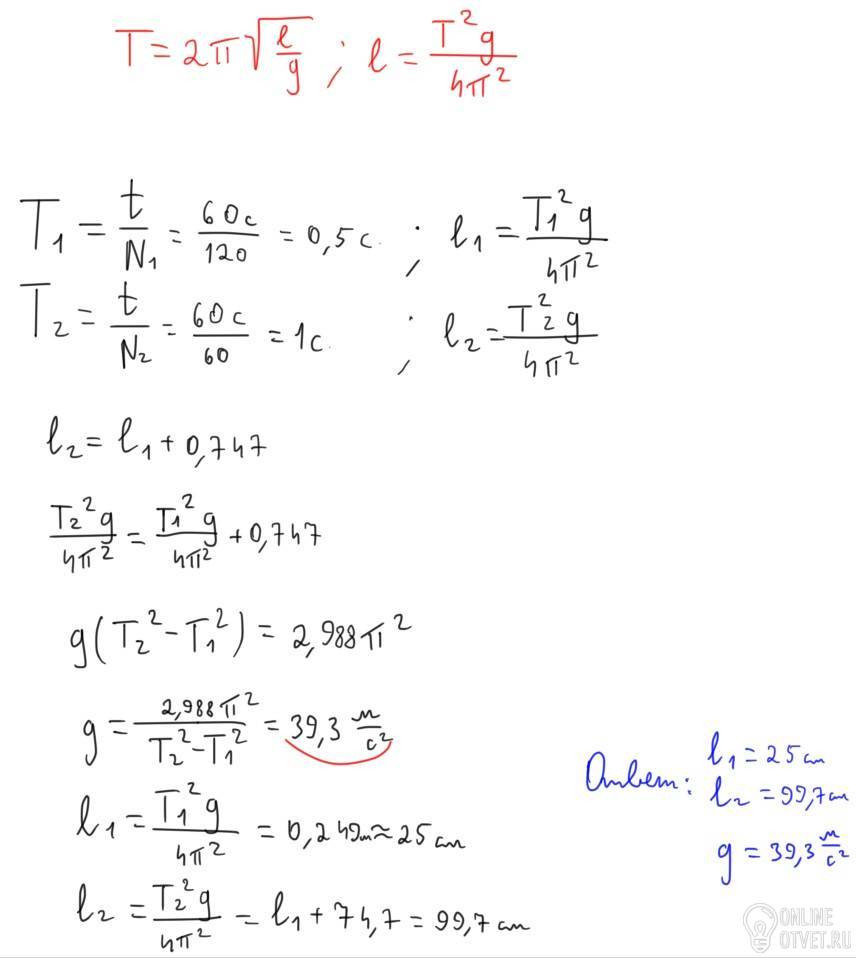 T = 2π√(l/g) ; l = T²g/4π²
T₁ = t/N₁ = 60с/120 = 0,5с. ; l₁ = T₁²g/4π²
T₂ = t/N₂ = 60с/60 = 1с. ; l₂ = T₂²g/4π²
l₂ = l₁ + 0,747
T₂²g/4π² = T₁²g/4π² + 0,747
g(T₂² - T₁²) = 2,988π²
g = 2,988π²/T₂² - T₁² = 39,3 м/с²
l₁ = T₁²g/4π² = 0,249м ≈ 25 см
l₂ = T₂²g/4π² = l₁ + 74,7 = 99,7 см
Ответ: l₁ = 25 см
l₂ = 99,7 см
g = 39,3 м/с²
ONLINE
OTVET.RU